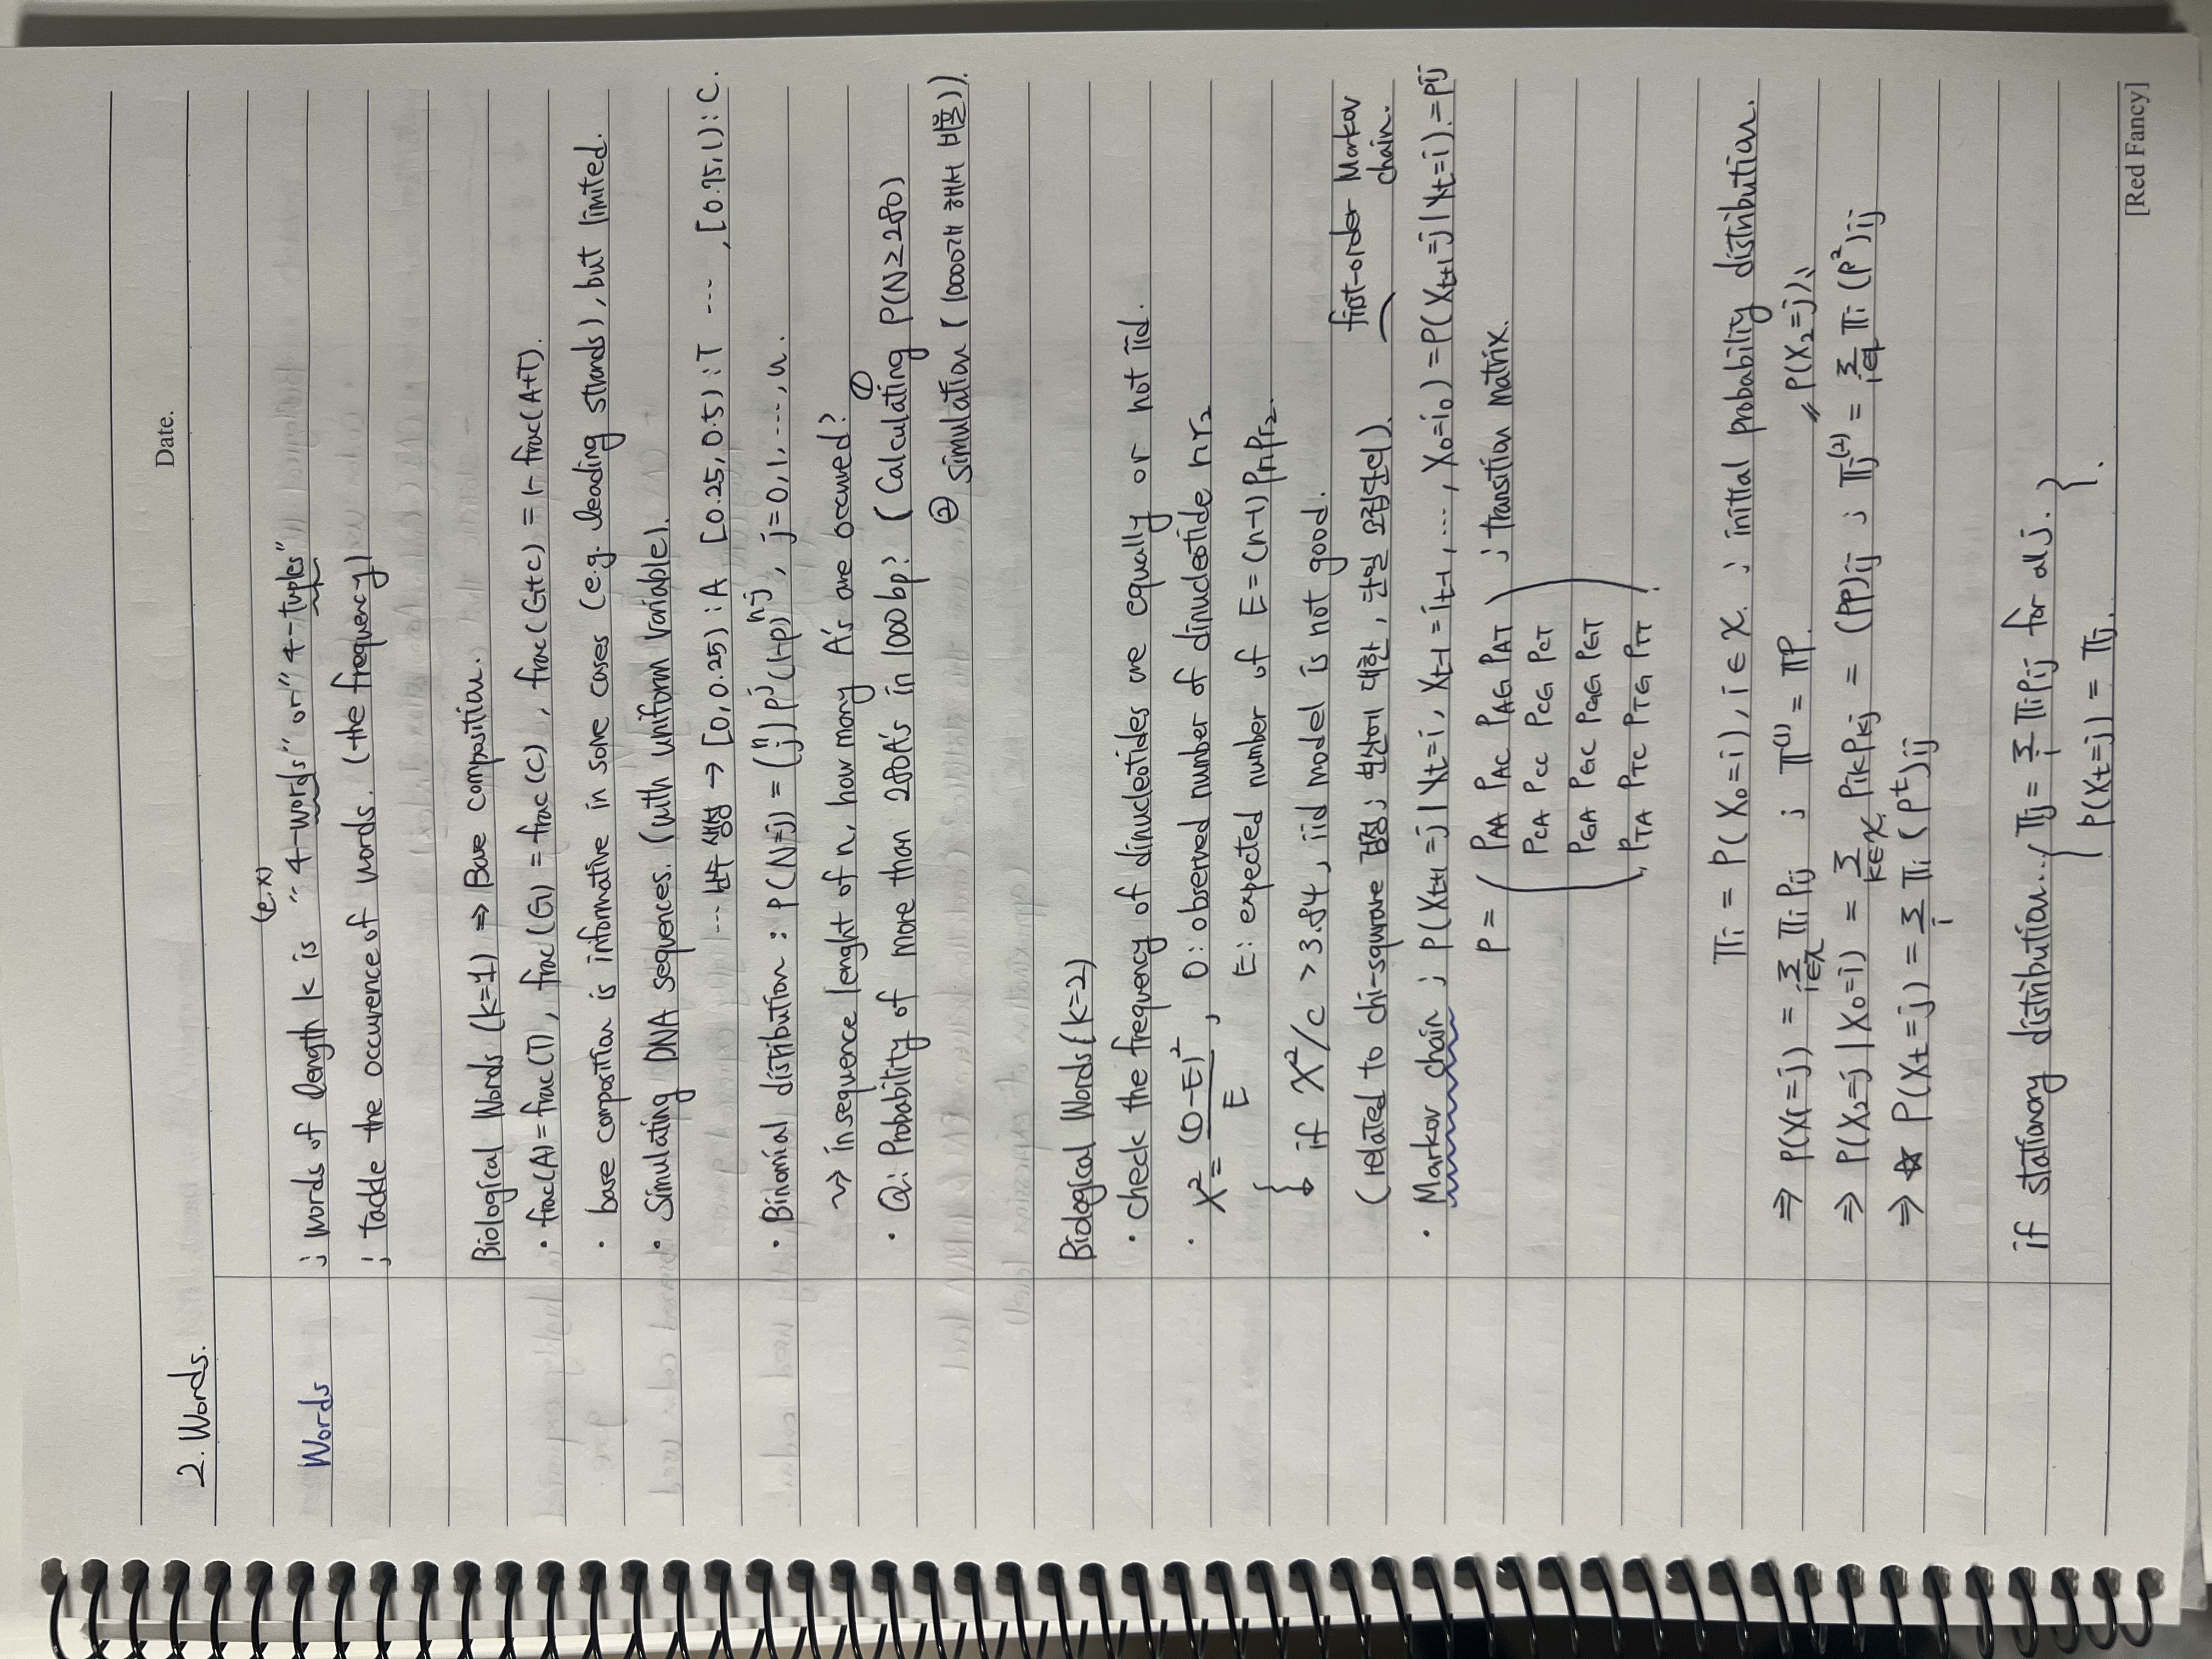 Date.
2. Words.
Words
(e.x)
; words of length k is "4-words" or "4-tuples"
; tackle the occurence of words. (the frequency)
Biological Words (k=1) ⇒ Base composition.
· frac(A)=frac(T), frac(G)=frac(C), frac(G+C) = 1-frac(A+T).
· base composition is informative in some cases (e.g. leading strands), but limited.
· Simulating DNA sequences. (with uniform variable).
... 난수 생성 → [0, 0.25) : A [0.25, 0.5) : T ... , [0.75, 1) : C.
· Binomial distribution : P(N=j) = (n j) p^j (1-p)^n-j, j=0, 1, ..., n.
~> in sequence lenght of n, how many A's are occured?
· Q: Probability of more than 280A's in 1000bp? ( Calculating ① P(N≥280)
② simulation ( 10000개 해서 비율)).
Biological Words (k=2)
· check the frequency of dinucleotides are equally or not iid.
· X² = (O-E)² / E , O: observed number of dinucleotide r1r2
E: expected number of E = (n-1) Pr1Pr2.
↳ if X²/c > 3.84, iid model is not good.
(related to chi-squrare 검정; 분산에 대한, 단일 모집단의).
first-order Markov chain.
· Markov chain ; P(Xt+1=j | Xt=i, Xt-1=it-1, ..., X0=i0) = P(Xt+1=j | Xt=i) = Pij
P = ( PAA PAC PAG PAT ) ; transition matrix.
PCA PCC PCG PCT
PGA PGC PGG PGT
PTA PTC PTG PTT
πi = P(X0=i), i∈X. ; initial probability distribution.
⇒ P(X1=j) = Σ i∈X πi Pij ; π^(1) = πP. "P(X2=j)"
⇒ P(X2=j | X0=i) = Σ k∈X Pik Pkj = (PP)ij ; πj^(2) = Σ i∈X πi (P²)ij
⇒ ☆ P(Xt=j) = Σ i πi (P^t)ij
if stationary distribution.., πj = Σ i πi Pij for all j.
P(Xt=j) = πj.
[Red Fancy]